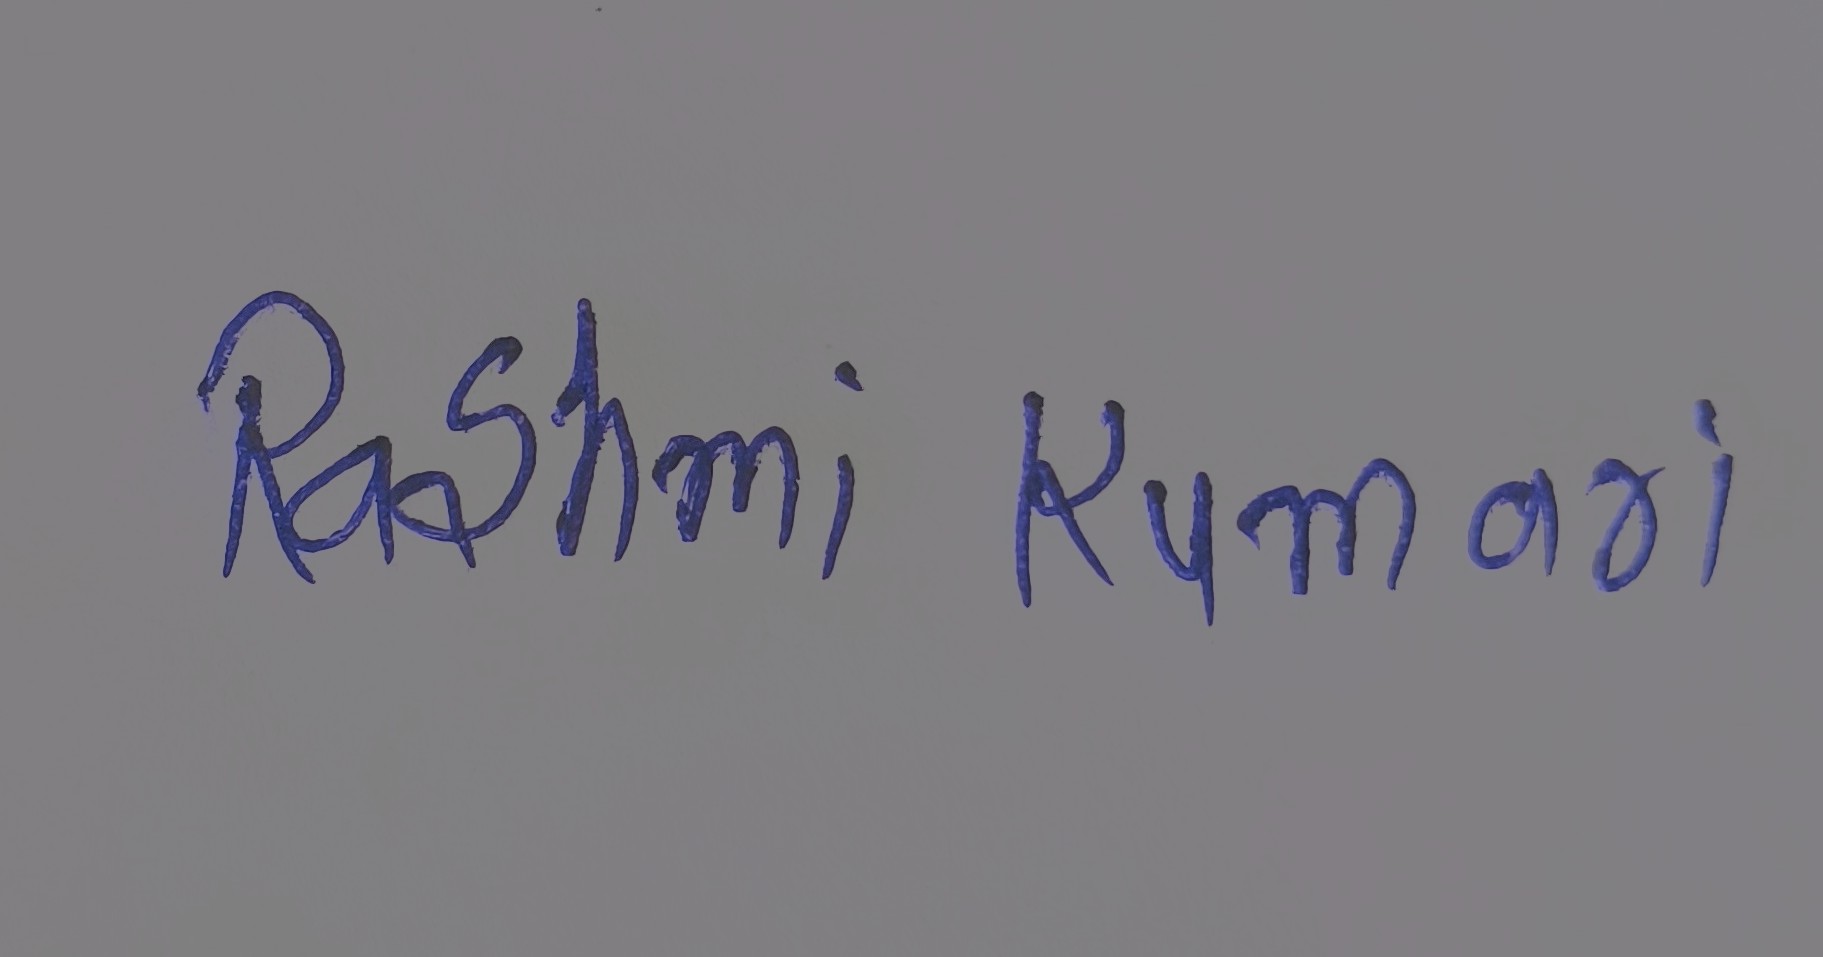 Rashmi Kumari